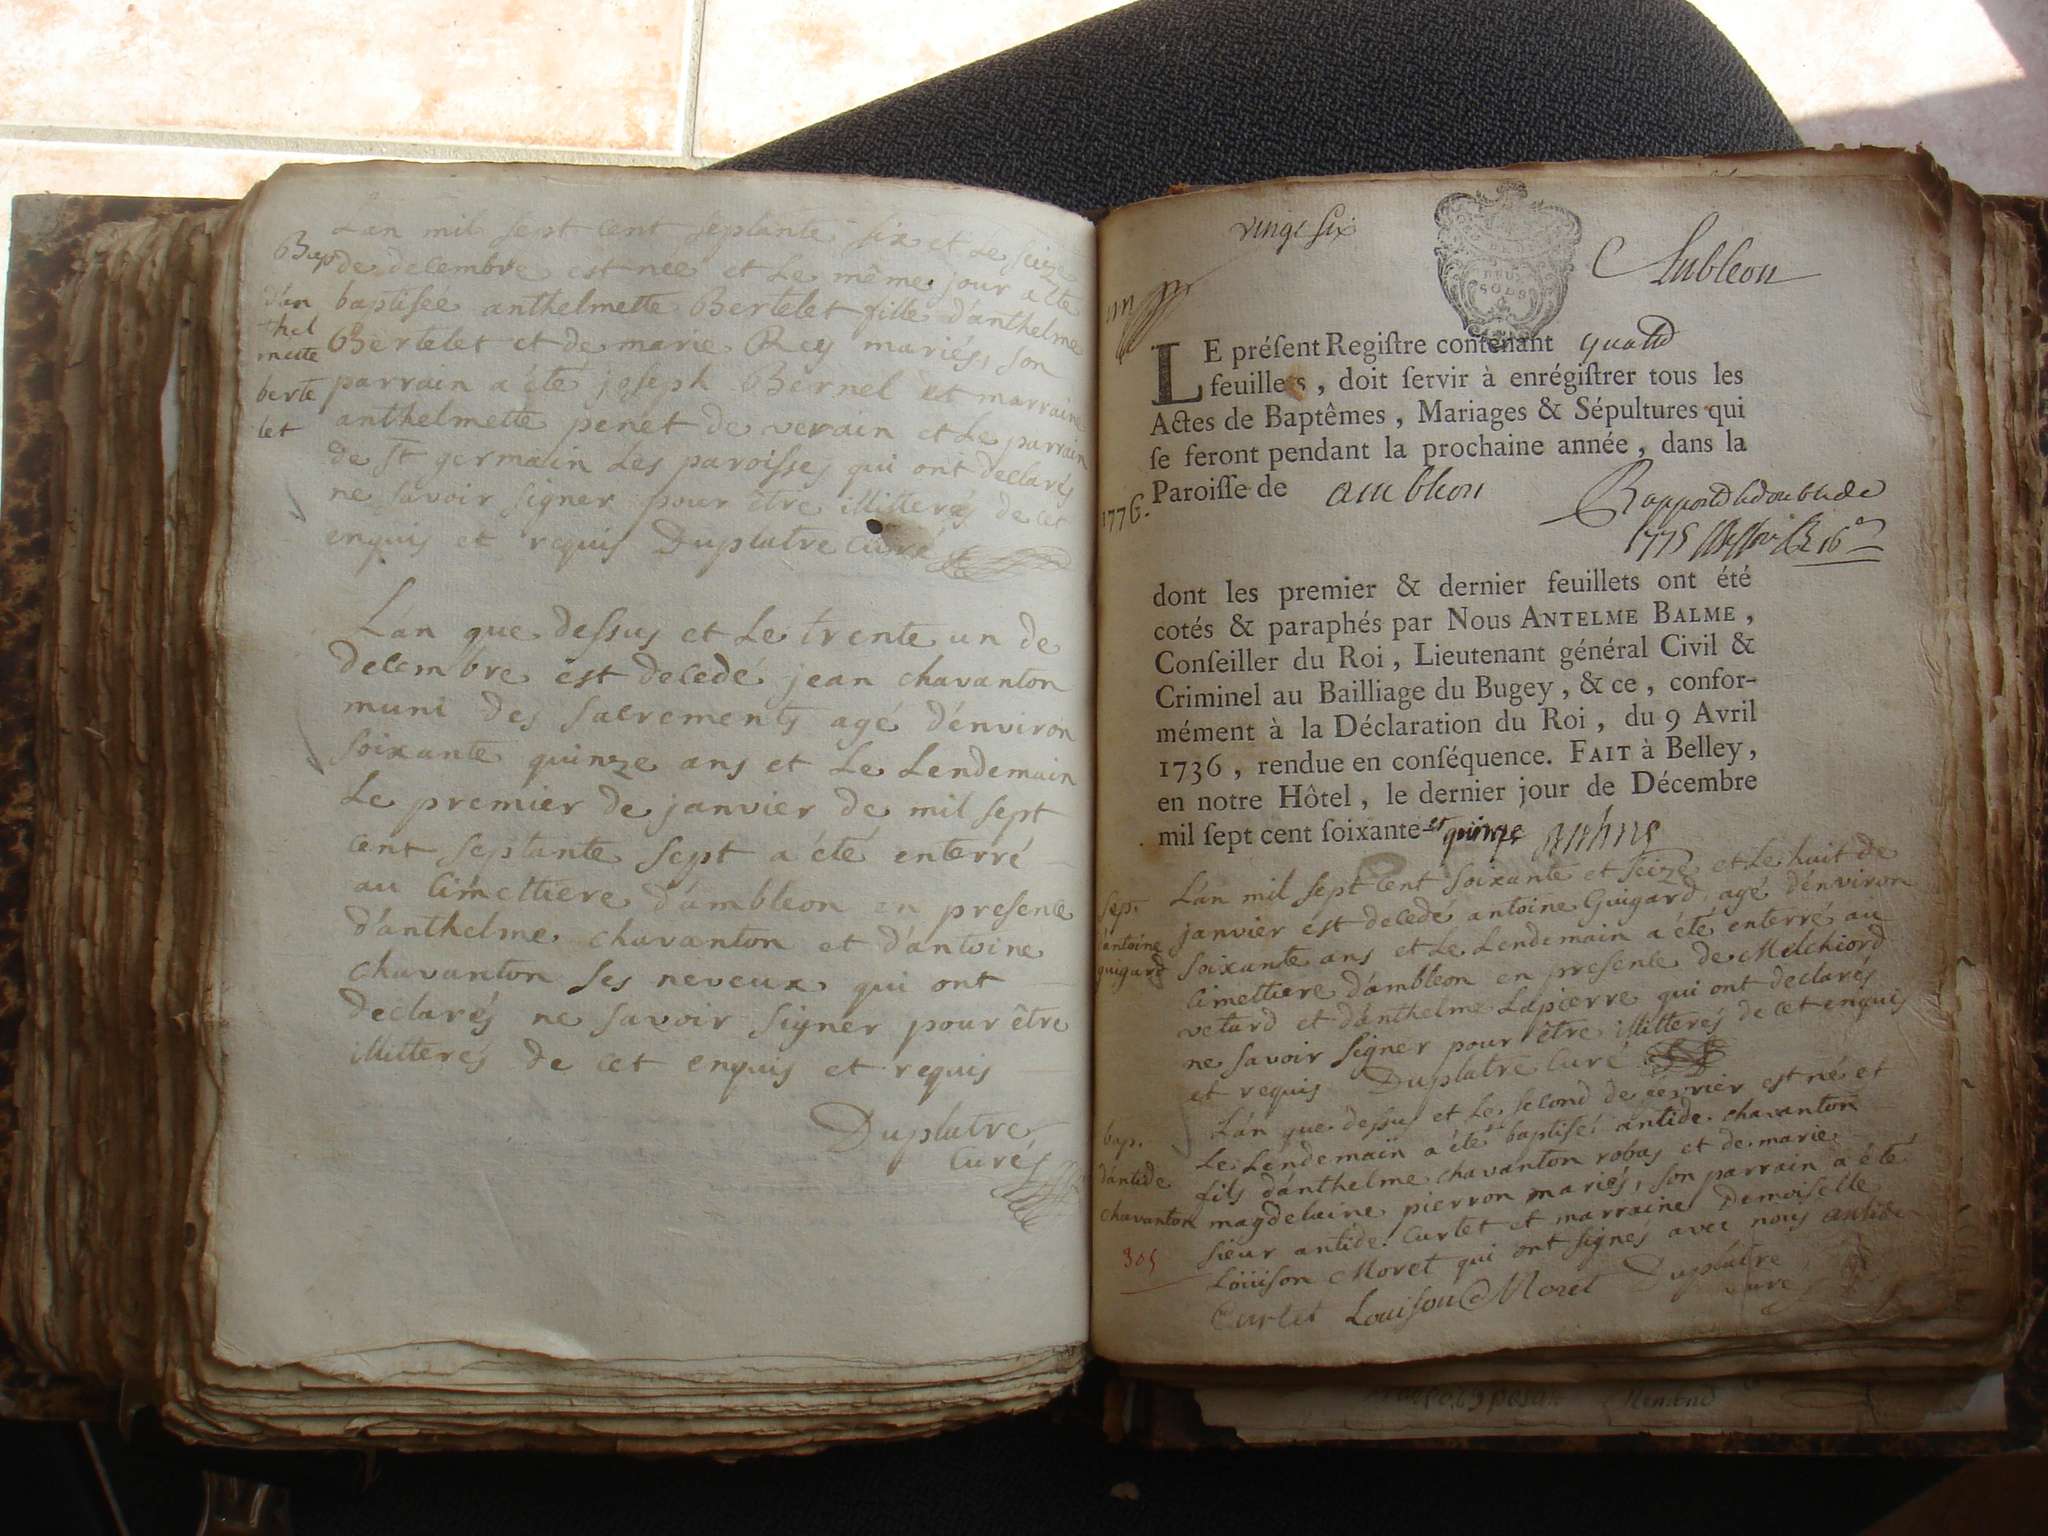 L'an mil sept cent septante six et le seize
Bap de decembre est nee et le même jour a été
d'an baptisée anthelmette Bertelet fille d'anthelme
thel
mette Bertelet et de marie Rey mariés, son
berte parrain a été joseph Bernel et marraine
let anthelmette penet de verain et le parrain
de st germain les paroisses qui ont declarés
ne savoir signer pour être illitterés de cet
enquis et requis Duplatre Curé
L'an que dessus et le trente un de
decembre est decedé jean chavanton
muni des sacrements agé d'environ
soixante quinze ans et le lendemain
le premier de janvier de mil sept
cent septante sept a été enterré
au cimettiere d'ambleon en presence
d'anthelme chavanton et d'antoine
chavanton ses neveux qui ont
declarés ne savoir signer pour être
illitterés de cet enquis et requis
Duplatre
Curé
vingt six
DEUX
SOLS
Ambleon
LE préſent Regiſtre contenant quatre
feuillets, doit ſervir à enrégiſtrer tous les
Actes de Baptêmes, Mariages & Sépultures qui
ſe feront pendant la prochaine année, dans la
Paroiſſe de ambleon
1776.
1775
dont les premier & dernier feuillets ont été
cotés & paraphés par Nous ANTELME BALME,
Conſeiller du Roi, Lieutenant général Civil &
Criminel au Bailliage du Bugey, & ce, confor-
mément à la Déclaration du Roi, du 9 Avril
1736, rendue en conſéquence. FAIT à Belley,
en notre Hôtel, le dernier jour de Décembre
mil ſept cent ſoixante et quinze
L'an mil sept cent soixante et seize et le huit de
sep. janvier est decedé antoine Guigard agé d'environ
d'antoine soixante ans et le lendemain a été enterré au
guigard cimettiere d'ambleon en presence de Melchiord
vetard et d'anthelme Lapierre qui ont declarés
ne savoir signer pour être illitterés de cet enquis
et requis Duplatre Curé
L'an que dessus et le second de fevrier est né et
bap. le lendemain a été baptisé antide chavanton
d'antide fils d'anthelme chavanton robas et de marie
chavanton magdelaine pierron mariés, son parrain a été
sieur antide Curtet et marraine Demoiselle
305 Loüison Moret qui ont signés avec nous antide
Curtet Louison Moret Duplatre
Curé